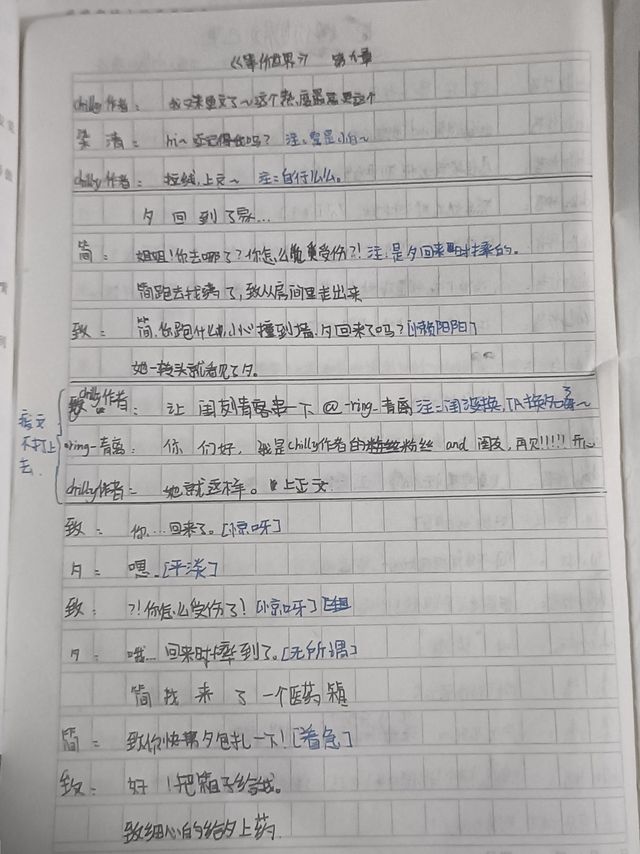 《等价世界》 第九章
chilly作者: 我又来更文了~这个熬夜最高更这个
染清: hi~还记得我吗? 注:曾是小白~
chilly作者: 拉线,上文~ 注:自行幺幺。
夕回到了家...
简: 姐姐!你去哪了?你怎么受伤?!注:是夕回来时摔的。
简跑去找 了,致从房间里走出来
致: 简,你跑什么,小心撞到墙,夕回来了吗?[懒阳阳]
她一转头就看见了夕。
chilly作者: 让闺刻青离串一下@-ring-青离 注:闺没换,TA换
-ring-青离: 你们好,我是chilly作者的粉丝 and 闺友,再见!!!!!
chilly作者: 她就这样。 上正文
该文不打上去.
致: 你....回来了。[惊呀]
夕: 嗯.[平淡]
致: ?!你怎么受伤了![惊呀]
夕: 哦... 回来时摔到了。[无所谓]
简找来了一个医药箱
简: 致你快帮夕包扎一下![着急]
致: 好!把箱子给我。
致细心的给夕上药.